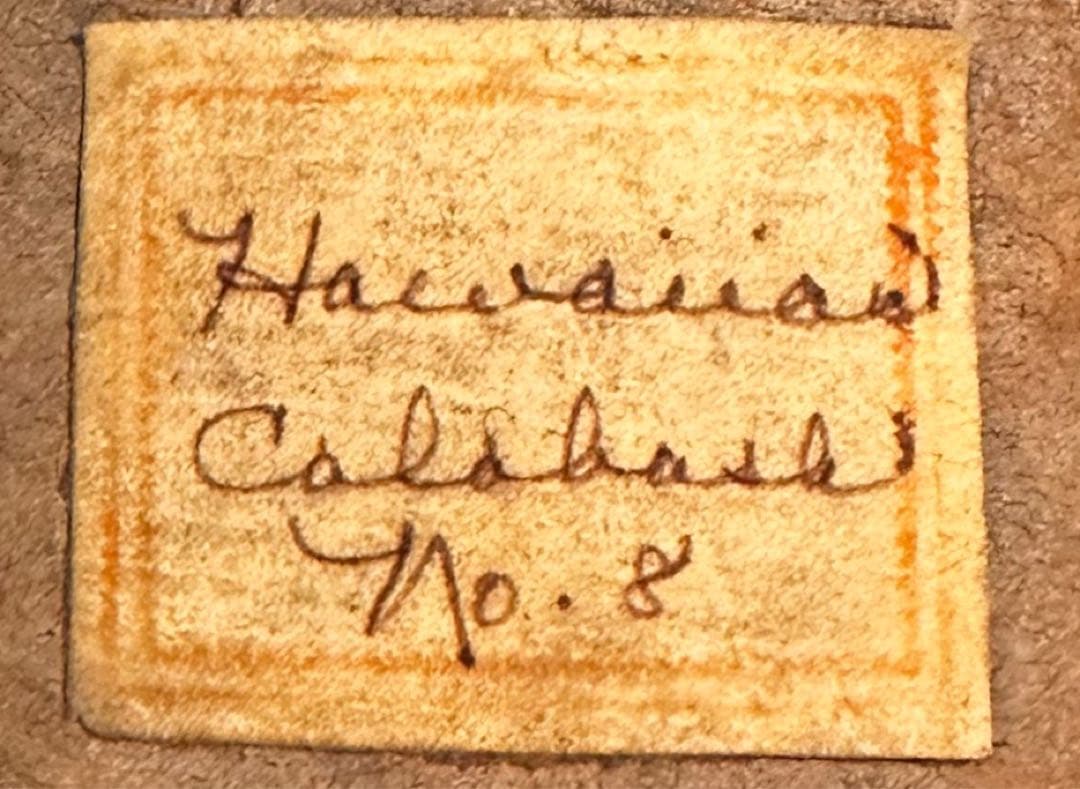 Hawaiian
Calabash
No. 8